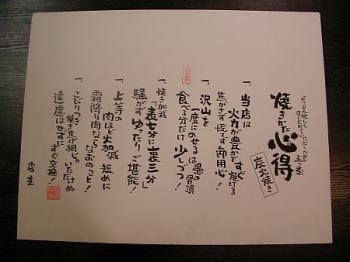 焼きかた心得
炭火焼き
一、当店は
火力が豊かです焼ける
焦がさず怪でず御用心！
一、沢山を
一度にのせるは愚の骨頂
食べる分だけ少しづつ！
一、焼き加減
「表七分に裏三分」
騒がずゆったりご堪能！
一、上等の
肉ほど火加減短めに
霜降り肉ならなおのこと！
一、こびりつき
焼き焦げ網じゃいただけぬ
遠慮はせずにすぐ交換！
店主